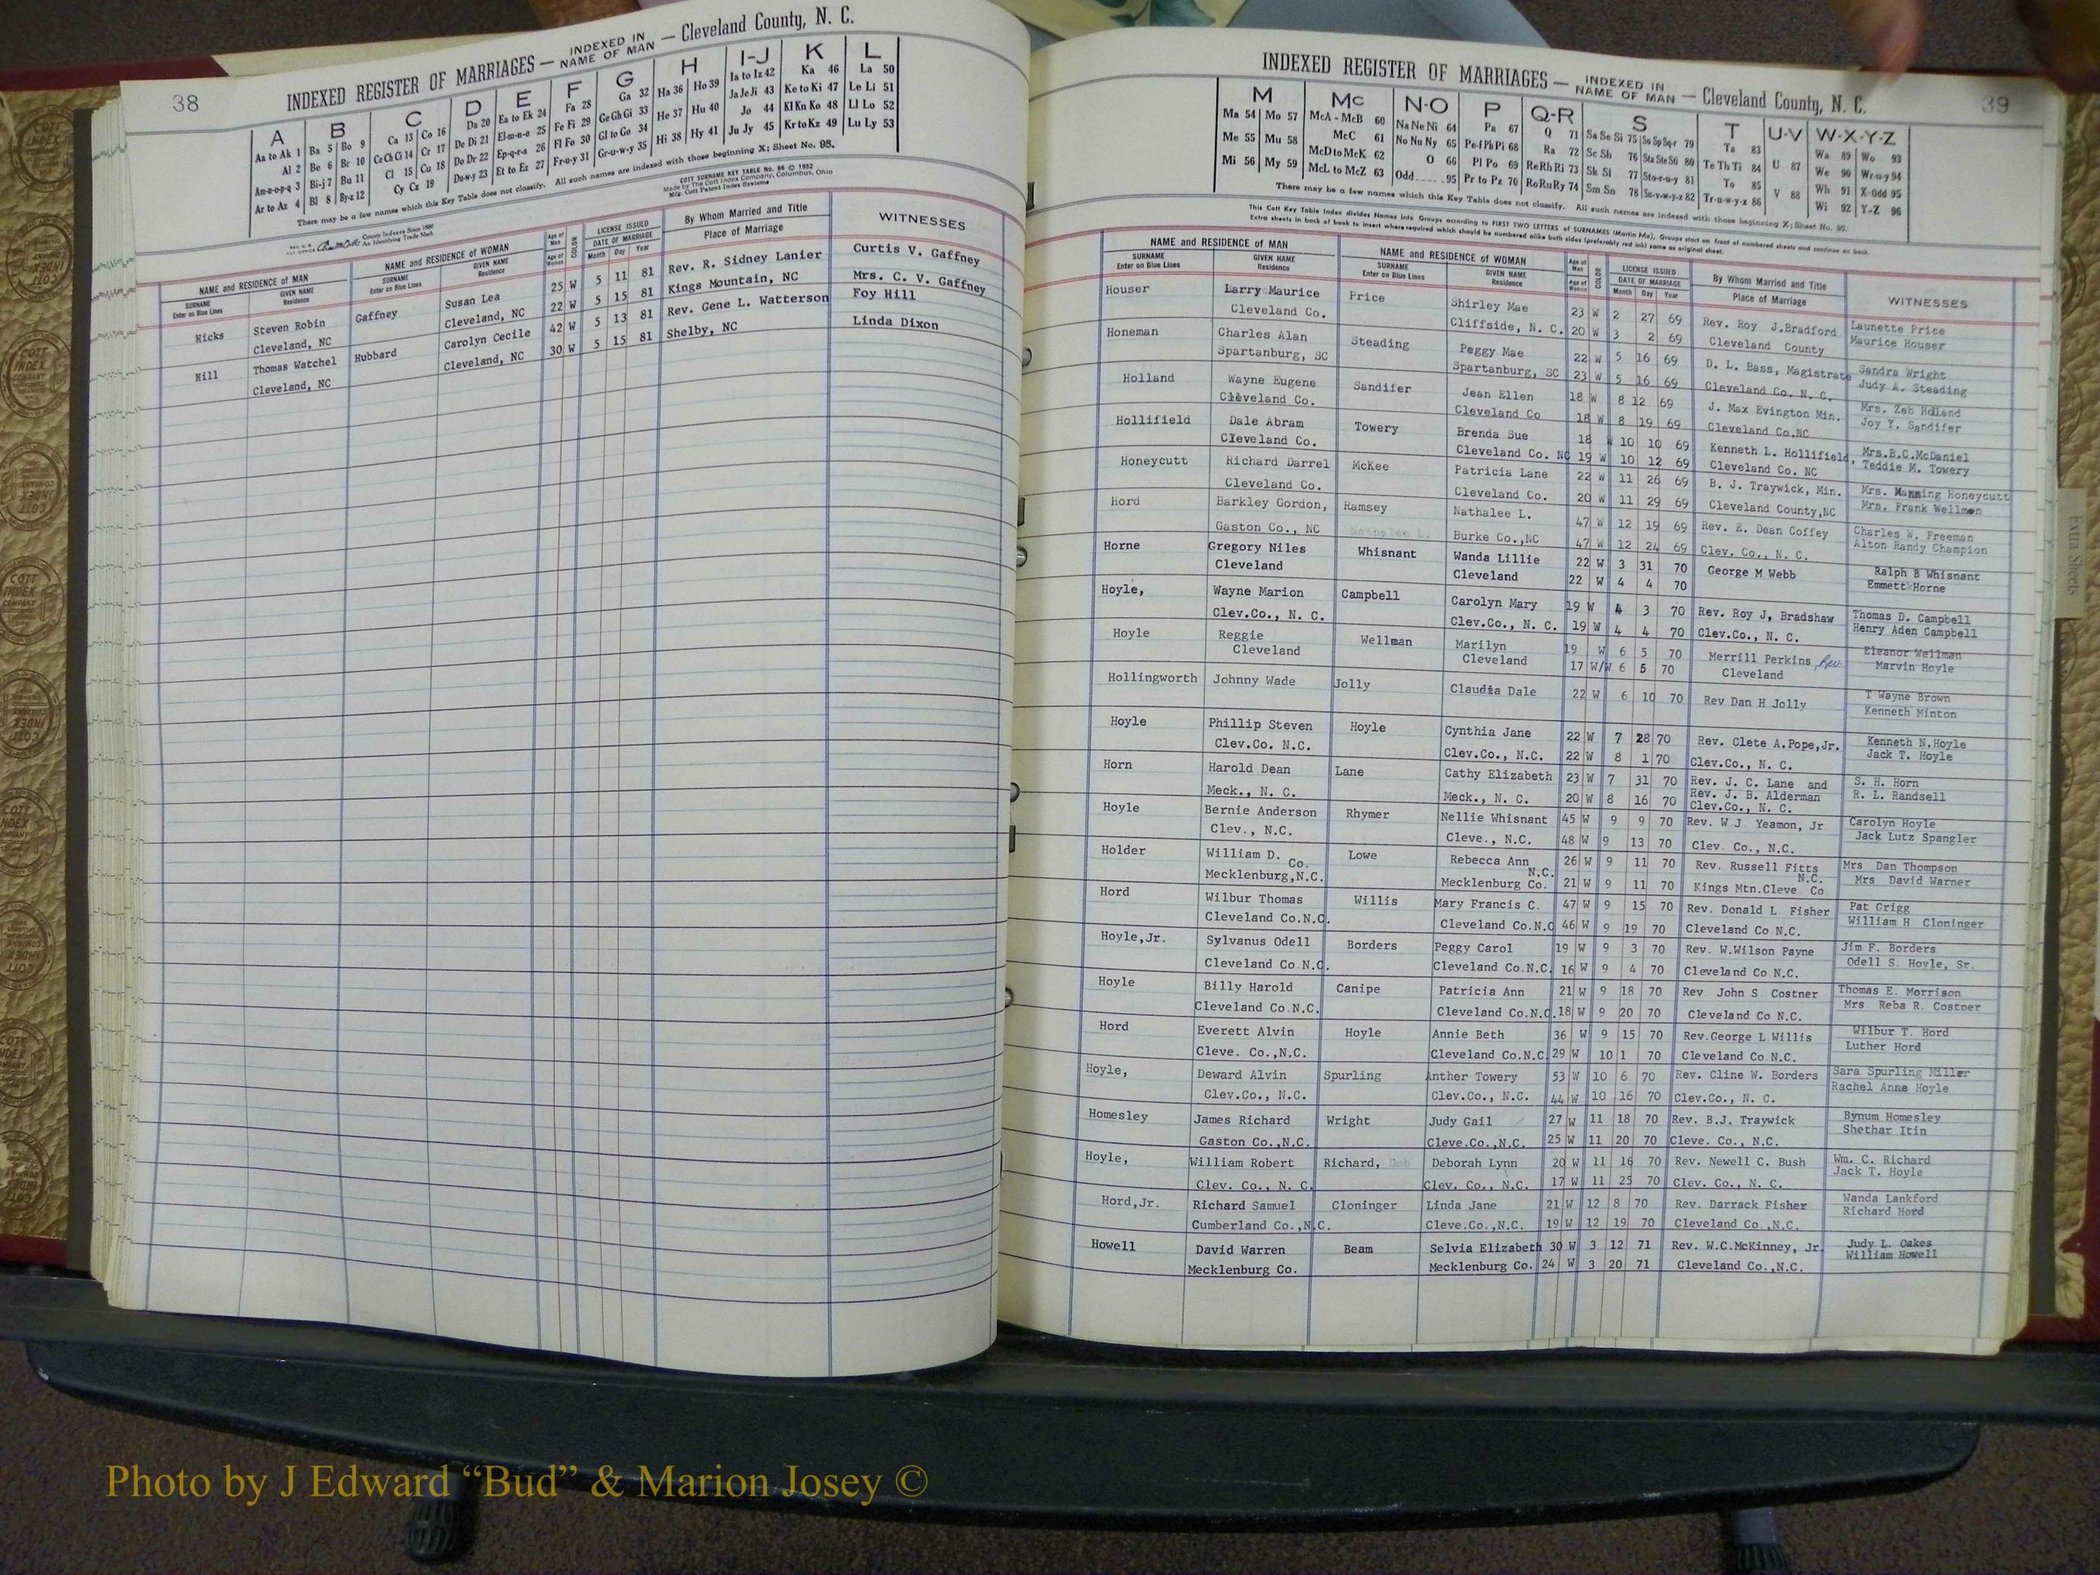 38
INDEXED REGISTER OF MARRIAGES — INDEXED IN NAME OF MAN — Cleveland County, N. C.
A B C D E F G H I-J K L
Aa to Ak 1 Ba 5 Bo 9 Ca 13 Co 16 Da 20 Ea to Ek 24 Fa 28 Ga 32 Ha 36 Ho 39 Ia to Iz 42 Ka 46 La 50
Al 2 Be 6 Br 10 Ce Ch Ci 14 Cr 17 De Di 21 El-m-n-o 25 Fe Fi 29 Ge Gh Gi 33 He 37 Hu 40 Ja Je Ji 43 Ke to Ki 47 Le Li 51
Am-n-o-p-q 3 Bi-j 7 Bu 11 Cl 15 Cu 18 Do Dr 22 Ep-q-r-s 26 Fl Fo 30 Gl to Go 34 Hi 38 Hy 41 Jo 44 Kl Kn Ko 48 Ll Lo 52
Ar to Az 4 Bl 8 By-z 12 Cy Cz 19 Du-w-y 23 Et to Ez 27 Fr-u-y 31 Gr-u-w-y 35 Ju Jy 45 Kr to Kz 49 Lu Ly 53
There may be a few names which this Key Table does not classify. All such names are indexed with those beginning X; Sheet No. 95.
COTT SURNAME KEY TABLE No. 96 © 1952
Made by The Cott Index Company, Columbus, Ohio
Mfg. Cott Patent Index Systems
County Indexes Since 1880
An Identifying Trade Mark
NAME and RESIDENCE OF MAN NAME and RESIDENCE OF WOMAN Age of Man Age of Woman COLOR LICENSE ISSUED DATE OF MARRIAGE By Whom Married and Title Place of Marriage WITNESSES
SURNAME Enter on Blue Lines GIVEN NAME Residence SURNAME Enter on Blue Lines GIVEN NAME Residence Month Day Year
Hicks Steven Robin Gaffney Susan Lea 25 W 5 11 81 Rev. R. Sidney Lanier Curtis V. Gaffney
Cleveland, NC Cleveland, NC 22 W 5 15 81 Kings Mountain, NC Mrs. C. V. Gaffney
Hill Thomas Watchel Hubbard Carolyn Cecile 42 W 5 13 81 Rev. Gene L. Watterson Foy Hill
Cleveland, NC Cleveland, NC 30 W 5 15 81 Shelby, NC Linda Dixon
39
INDEXED REGISTER OF MARRIAGES — INDEXED IN NAME OF MAN — Cleveland County, N. C.
M Mc N-O P Q-R S T U-V W-X-Y-Z
Ma 54 Mo 57 McA - McB 60 Na Ne Ni 64 Pa 67 Q 71 Sa Se Si 75 So Sp Sq-r 79 Ta 83 Wa 89 Wo 93
Me 55 Mu 58 McC 61 No Nu Ny 65 Pe-f Ph Pi 68 Ra 72 Sc Sh 76 Sta Ste Sti 80 Te Th Ti 84 U 87 We 90 Wr-u-y 94
Mi 56 My 59 McD to McK 62 O 66 Pl Po 69 Re Rh Ri 73 Sk Sl 77 Sto-r-u-y 81 To 85 V 88 Wh 91 X-Odd 95
McL to McZ 63 Odd 95 Pr to Pz 70 Ro Ru Ry 74 Sm Sn 78 Su-v-w-y-z 82 Tr-u-w-y-z 86 Wi 92 Y-Z 96
There may be a few names which this Key Table does not classify. All such names are indexed with those beginning X; Sheet No. 95.
This Cott Key Table Index divides Names into Groups according to FIRST TWO LETTERS of SURNAMES (Martin Ma), Groups start on front of numbered sheets and continue on back.
Extra sheets in back of book to insert where required which should be numbered alike both sides (preferably red ink) same as original sheet.
NAME and RESIDENCE OF MAN NAME and RESIDENCE OF WOMAN Age of Man Age of Woman COLOR LICENSE ISSUED DATE OF MARRIAGE By Whom Married and Title Place of Marriage WITNESSES
SURNAME Enter on Blue Lines GIVEN NAME Residence SURNAME Enter on Blue Lines GIVEN NAME Residence Month Day Year
Houser Larry Maurice Price Shirley Mae 23 W 2 27 69 Rev. Roy J.Bradford Launette Price
Cleveland Co. Cliffside, N. C. 20 W 3 2 69 Cleveland County Maurice Houser
Honeman Charles Alan Steading Peggy Mae 22 W 5 16 69 D. L. Bass, Magistrate Sandra Wright
Spartanburg, SC Spartanburg, SC 23 W 5 16 69 Cleveland Co. N. C. Judy A. Steading
Holland Wayne Eugene Sandifer Jean Ellen 18 W 8 12 69 J. Max Evington Min. Mrs. Zeb Holland
Cleveland Co. Cleveland Co 18 W 8 19 69 Cleveland Co.NC Joy Y. Sandifer
Hollifield Dale Abram Towery Brenda Sue 18 W 10 10 69 Kenneth L. Hollifield, Mrs.B.C.McDaniel
Cleveland Co. Cleveland Co. NC 19 W 10 12 69 Cleveland Co. NC Teddie M. Towery
Honeycutt Richard Darrel McKee Patricia Lane 22 W 11 26 69 B. J. Traywick, Min. Mrs. Manning Honeycutt
Cleveland Co. Cleveland Co. 20 W 11 29 69 Cleveland County,NC Mrs. Frank Wellmon
Hord Barkley Gordon, Ramsey Nathalee L. 47 W 12 19 69 Rev. E. Dean Coffey Charles W. Freeman
Gaston Co., NC Nathalee L. Burke Co.,NC 47 W 12 24 69 Clev. Co., N. C. Alton Randy Champion
Horne Gregory Niles Whisnant Wanda Lillie 22 W 3 31 70 George M Webb Ralph B Whisnant
Cleveland Cleveland 22 W 4 4 70 Emmett Horne
Hoyle, Wayne Marion Campbell Carolyn Mary 19 W 4 3 70 Rev. Roy J, Bradshaw Thomas D. Campbell
Clev.Co., N. C. Clev.Co., N. C. 19 W 4 4 70 Clev.Co., N. C. Henry Aden Campbell
Hoyle Reggie Wellman Marilyn 19 W 6 5 70 Merrill Perkins, Rev. Eleanor Wellman
Cleveland Cleveland 17 W/W 6 5 70 Cleveland Marvin Hoyle
Hollingworth Johnny Wade Jolly Claudia Dale 22 W 6 10 70 Rev Dan H Jolly T Wayne Brown
Kenneth Minton
Hoyle Phillip Steven Hoyle Cynthia Jane 22 W 7 28 70 Rev. Clete A.Pope,Jr. Kenneth N.Hoyle
Clev.Co. N.C. Clev.Co., N.C. 22 W 8 1 70 Clev.Co., N. C. Jack T. Hoyle
Horn Harold Dean Lane Cathy Elizabeth 23 W 7 31 70 Rev. J. C. Lane and S. H. Horn
Rev. J. B. Alderman
Meck., N. C. Meck., N. C. 20 W 8 16 70 Clev.Co., N. C. R. L. Randsell
Hoyle Bernie Anderson Rhymer Nellie Whisnant 45 W 9 9 70 Rev. W J Yeamon, Jr Carolyn Hoyle
Clev., N.C. Cleve., N.C. 48 W 9 13 70 Clev. Co., N.C. Jack Lutz Spangler
Holder William D. Lowe Rebecca Ann 26 W 9 11 70 Rev. Russell Fitts Mrs Dan Thompson
Co. N.C. N.C.
Mecklenburg,N.C. Mecklenburg Co. 21 W 9 11 70 Kings Mtn.Cleve Co Mrs David Warner
Hord Wilbur Thomas Willis Mary Francis C. 47 W 9 15 70 Rev. Donald L Fisher Pat Grigg
Cleveland Co.N.C. Cleveland Co.N.C 46 W 9 19 70 Cleveland Co N.C. William H Cloninger
Hoyle,Jr. Sylvanus Odell Borders Peggy Carol 19 W 9 3 70 Rev. W.Wilson Payne Jim F. Borders
Cleveland Co.N.C. Cleveland Co.N.C. 16 W 9 4 70 Cleveland Co N.C. Odell S. Hoyle, Sr.
Hoyle Billy Harold Canipe Patricia Ann 21 W 9 18 70 Rev John S Costner Thomas E. Morrison
Cleveland Co.N.C. Cleveland Co.N.C. 18 W 9 20 70 Cleveland Co N.C. Mrs Reba R. Costner
Hord Everett Alvin Hoyle Annie Beth 36 W 9 15 70 Rev.George L Willis Wilbur T. Hord
Cleve. Co.,N.C. Cleveland Co.N.C 29 W 10 1 70 Cleveland Co N.C. Luther Hord
Hoyle, Deward Alvin Spurling Anther Towery 53 W 10 6 70 Rev. Cline W. Borders Sara Spurling Miller
Clev.Co., N.C. Clev.Co., N.C. 44 W 10 16 70 Clev.Co., N. C. Rachel Anne Hoyle
Homesley James Richard Wright Judy Gail 27 W 11 18 70 Rev. B.J. Traywick Bynum Homesley
Gaston Co.,N.C. Cleve.Co.,N.C. 25 W 11 20 70 Cleve. Co., N.C. Shethar Itin
Hoyle, William Robert Richard, Deb Deborah Lynn 20 W 11 16 70 Rev. Newell C. Bush Wm. C. Richard
Clev. Co., N. C. Clev. Co., N.C. 17 W 11 25 70 Clev. Co., N. C. Jack T. Hoyle
Hord,Jr. Richard Samuel Cloninger Linda Jane 21 W 12 8 70 Rev. Darrack Fisher Wanda Lankford
Cumberland Co.,N.C. Cleve.Co.,N.C. 19 W 12 19 70 Cleveland Co.,N.C. Richard Hord
Howell David Warren Beam Selvia Elizabeth 30 W 3 12 71 Rev. W.C.McKinney, Jr. Judy L. Oakes
Mecklenburg Co. Mecklenburg Co. 24 W 3 20 71 Cleveland Co.,N.C. William Howell
Extra Sheets
COTT INDEX COMPANY
Photo by J Edward “Bud” & Marion Josey ©